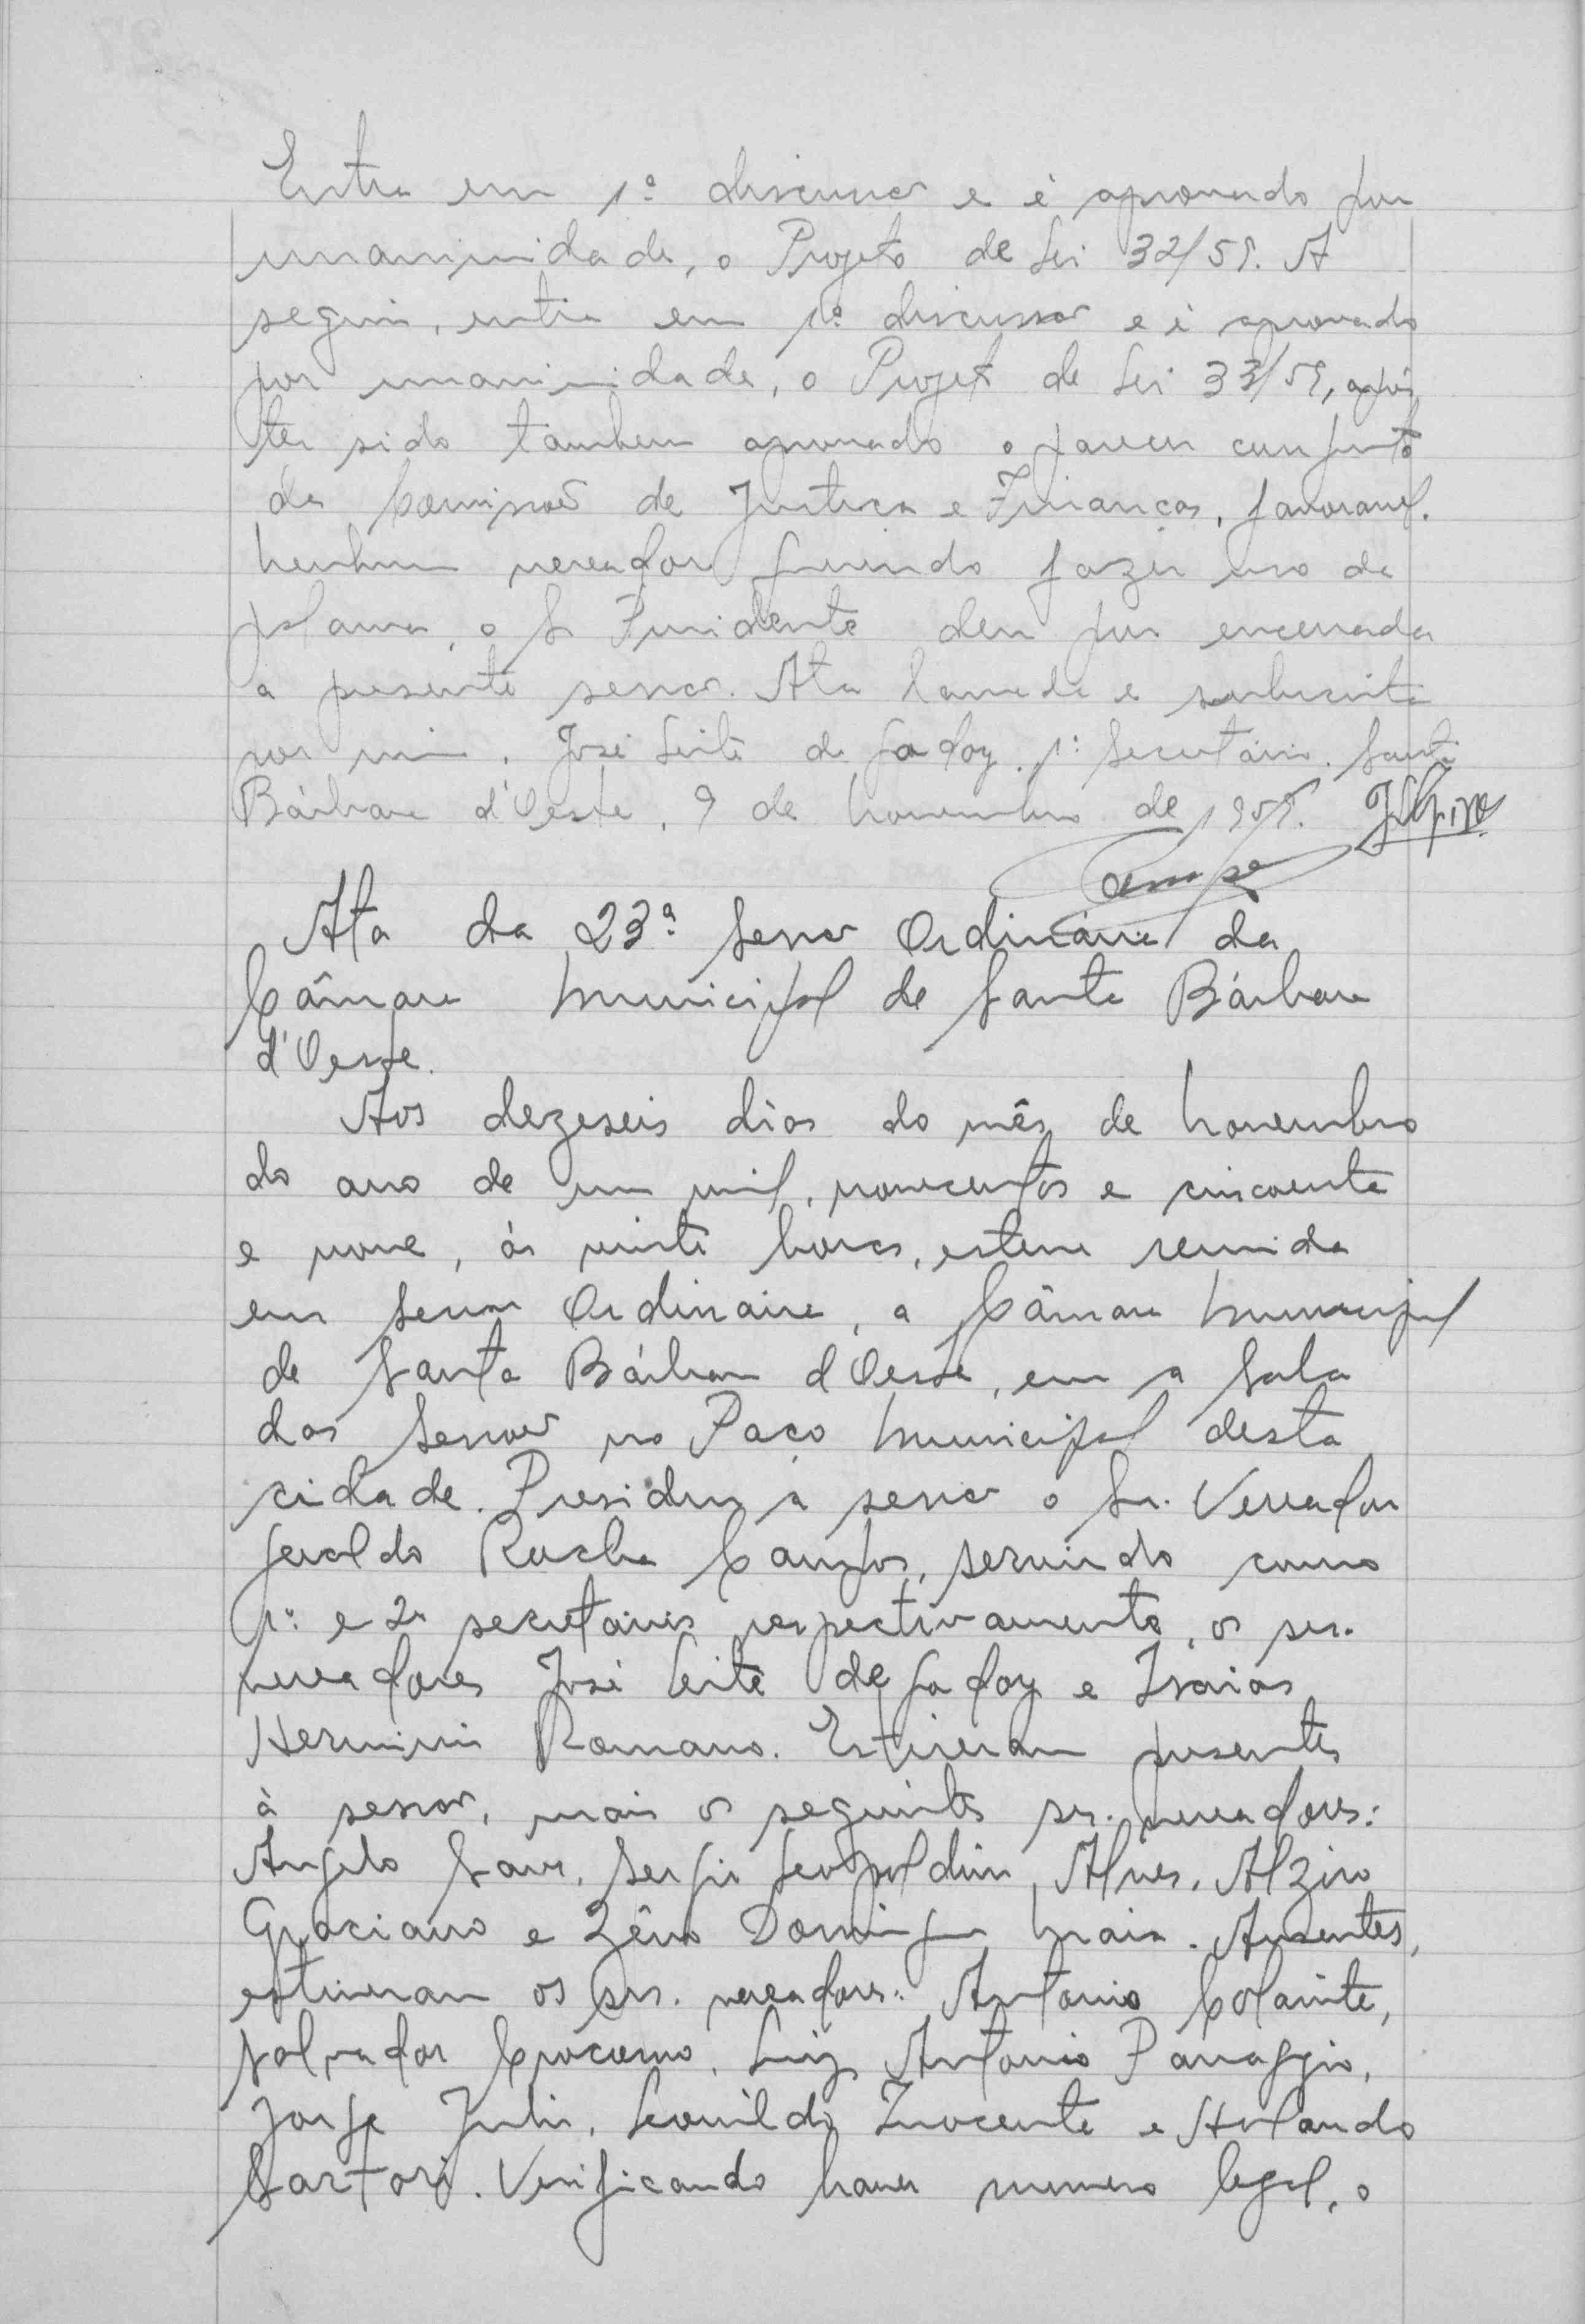 Entra em 1ª discussão e é aprovado por
unanimidade, o Projeto de Lei 32/59. A
seguir, entra em 1ª discussão e é aprovado
por unanimidade, o Projeto de Lei 33/59, após
ter sido tambem aprovado o parecer conjunto
da Comissão de Justiça e Finanças, favoravel.
Nenhum vereador querendo fazer uso da
palavra, o Sr Presidente deu por encerrada
a presente sessão. Ata lavrada e subscrita
por mim, José Leite de Godoy, 1º Secretário. Santa
Bárbara d'Oeste, 9 de Novembro de 1959.
Ata da 23ª Sessão Ordinária da
Câmara Municipal de Santa Bárbara
d'Oeste.
Aos dezeseis dias do mês de Novembro
do ano de um mil, novecentos e cincoenta
e nove, ás vinte horas, esteve reunida
em Sessão Ordinária, a Câmara Municipal
de Santa Bárbara d'Oeste, em a Sala
das Sessões no Paço Municipal desta
cidade. Presidiu a sessão o Sr. Vereador
Geraldo Rocha Campos, servindo como
1º e 2º secretários respectivamente, os srs.
vereadores José Leite de Godoy e Isaias
Herminio Romano. Estiveram presentes
à sessão, mais os seguintes srs. vereadores:
Angelo Sans, Sergio Leopoldino Alves, Alziro
Graciano e Zêno Domingos Maia. Ausentes,
estiveram os srs. vereadores: Antonio
Salvador, Luiz Antonio Panaggio,
Jorge Julio, Leonildo Inocente e Orlando
Sartori. Verificando haver numero legal, o